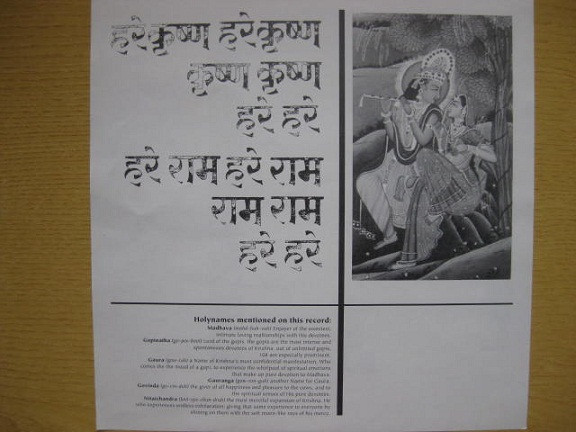 हरे कृष्ण हरे कृष्ण
कृष्ण कृष्ण
हरे हरे
हरे राम हरे राम
राम राम
हरे हरे
Holynames mentioned on this record:
Madhava Enjoyer of the sweetest,
intimate loving realtionships with His devotees.
Gopinatha Lord of the gopis, the gopis are the most intense and
spontaneous devotees of Krishna, out of unlimited gopis,
108 are especially prominent.
Gaura a Name of Krishna's most confidential manifestation, Who
comes the the mood of a gopi, to experience the whirlpool of spiritual emotions
that make up pure devotion to Madhava.
Gauranga another Name for Gaura.
Govinda the giver of all happiness and pleasure to the cows, and to
the spiritual senses of His pure devotees.
Nitaichandra the most merciful expansion of Krishna. He
who experiences endless exhilaration; giving that same experience to everyone by
shining on them with the soft moon-like rays of his mercy.